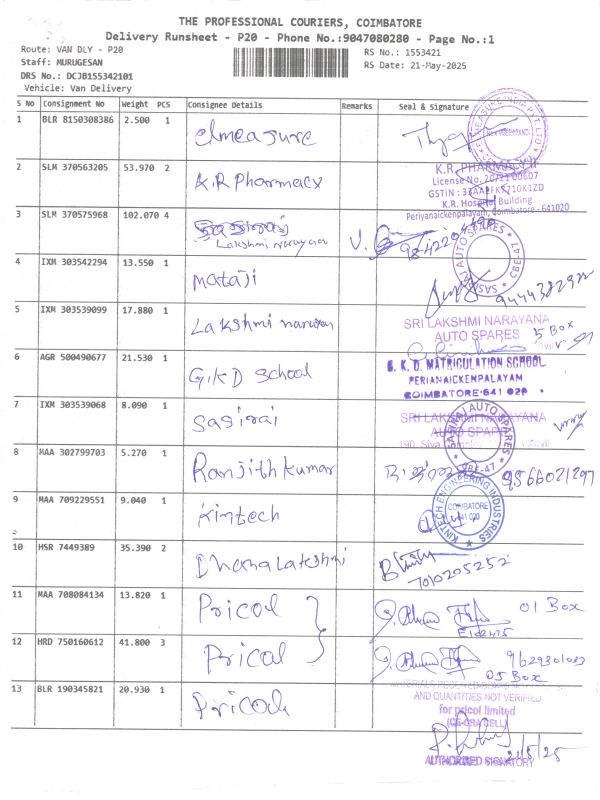 THE PROFESSIONAL COURIERS, COIMBATORE
Delivery Runsheet - P20 - Phone No.:9047080280 - Page No.:1
Route: VAN DLY - P20
RS No.: 1553421
Staff: MURUGESAN
RS Date: 21-May-2025
DRS No.: DCJB155342101
Vehicle: Van Delivery
S No Consignment No Weight PCS Consignee Details Remarks Seal & Signature
1 BLR 8150308386 2.500 1 elmeasure
2 SLM 370563205 53.970 2 K.R Pharmacy
K.R. PHARMACY
License No. 20/21
K.R. Hospital Building
Periyanaickenpalayam, Coimbatore - 641020
3 SLM 370575968 102.070 4 Lakshmi narayana
SASIRAJ AUTO SPARES CBE-47
4 IXM 303542294 13.550 1 mataji
9444382922
5 IXM 303539099 17.880 1 Lakshmi narayan
SRI LAKSHMI NARAYANA
AUTO SPARES
5 Box
6 AGR 500490677 21.530 1 G.K.D School
G. K. D. MATRICULATION SCHOOL
PERIANAICKENPALAYAM
COIMBATORE-641 020
7 IXM 303539068 8.090 1 Sasiraj
SRI LAKSHMI NARAYANA
AUTO SPARES
SASIRAJ AUTO SPARES CBE-47
8 MAA 302799703 5.270 1 Ranjith kumar
9566021297
9 MAA 709229551 9.040 1 Kintech
KINTECH ENGINEERING INDUSTRIES
COIMBATORE
641 020
10 HSR 7449389 35.390 2 Dhanalakshmi
7010205252
11 MAA 708084134 13.820 1 Pricol
01 Box
12 HRD 750160612 41.800 3 Pricol
05 Box
13 BLR 190345821 20.930 1 Pricol
AND QUANTITIES NOT VERIFIED
for pricol limited
21/5/25
AUTHORIZED SIGNATORY